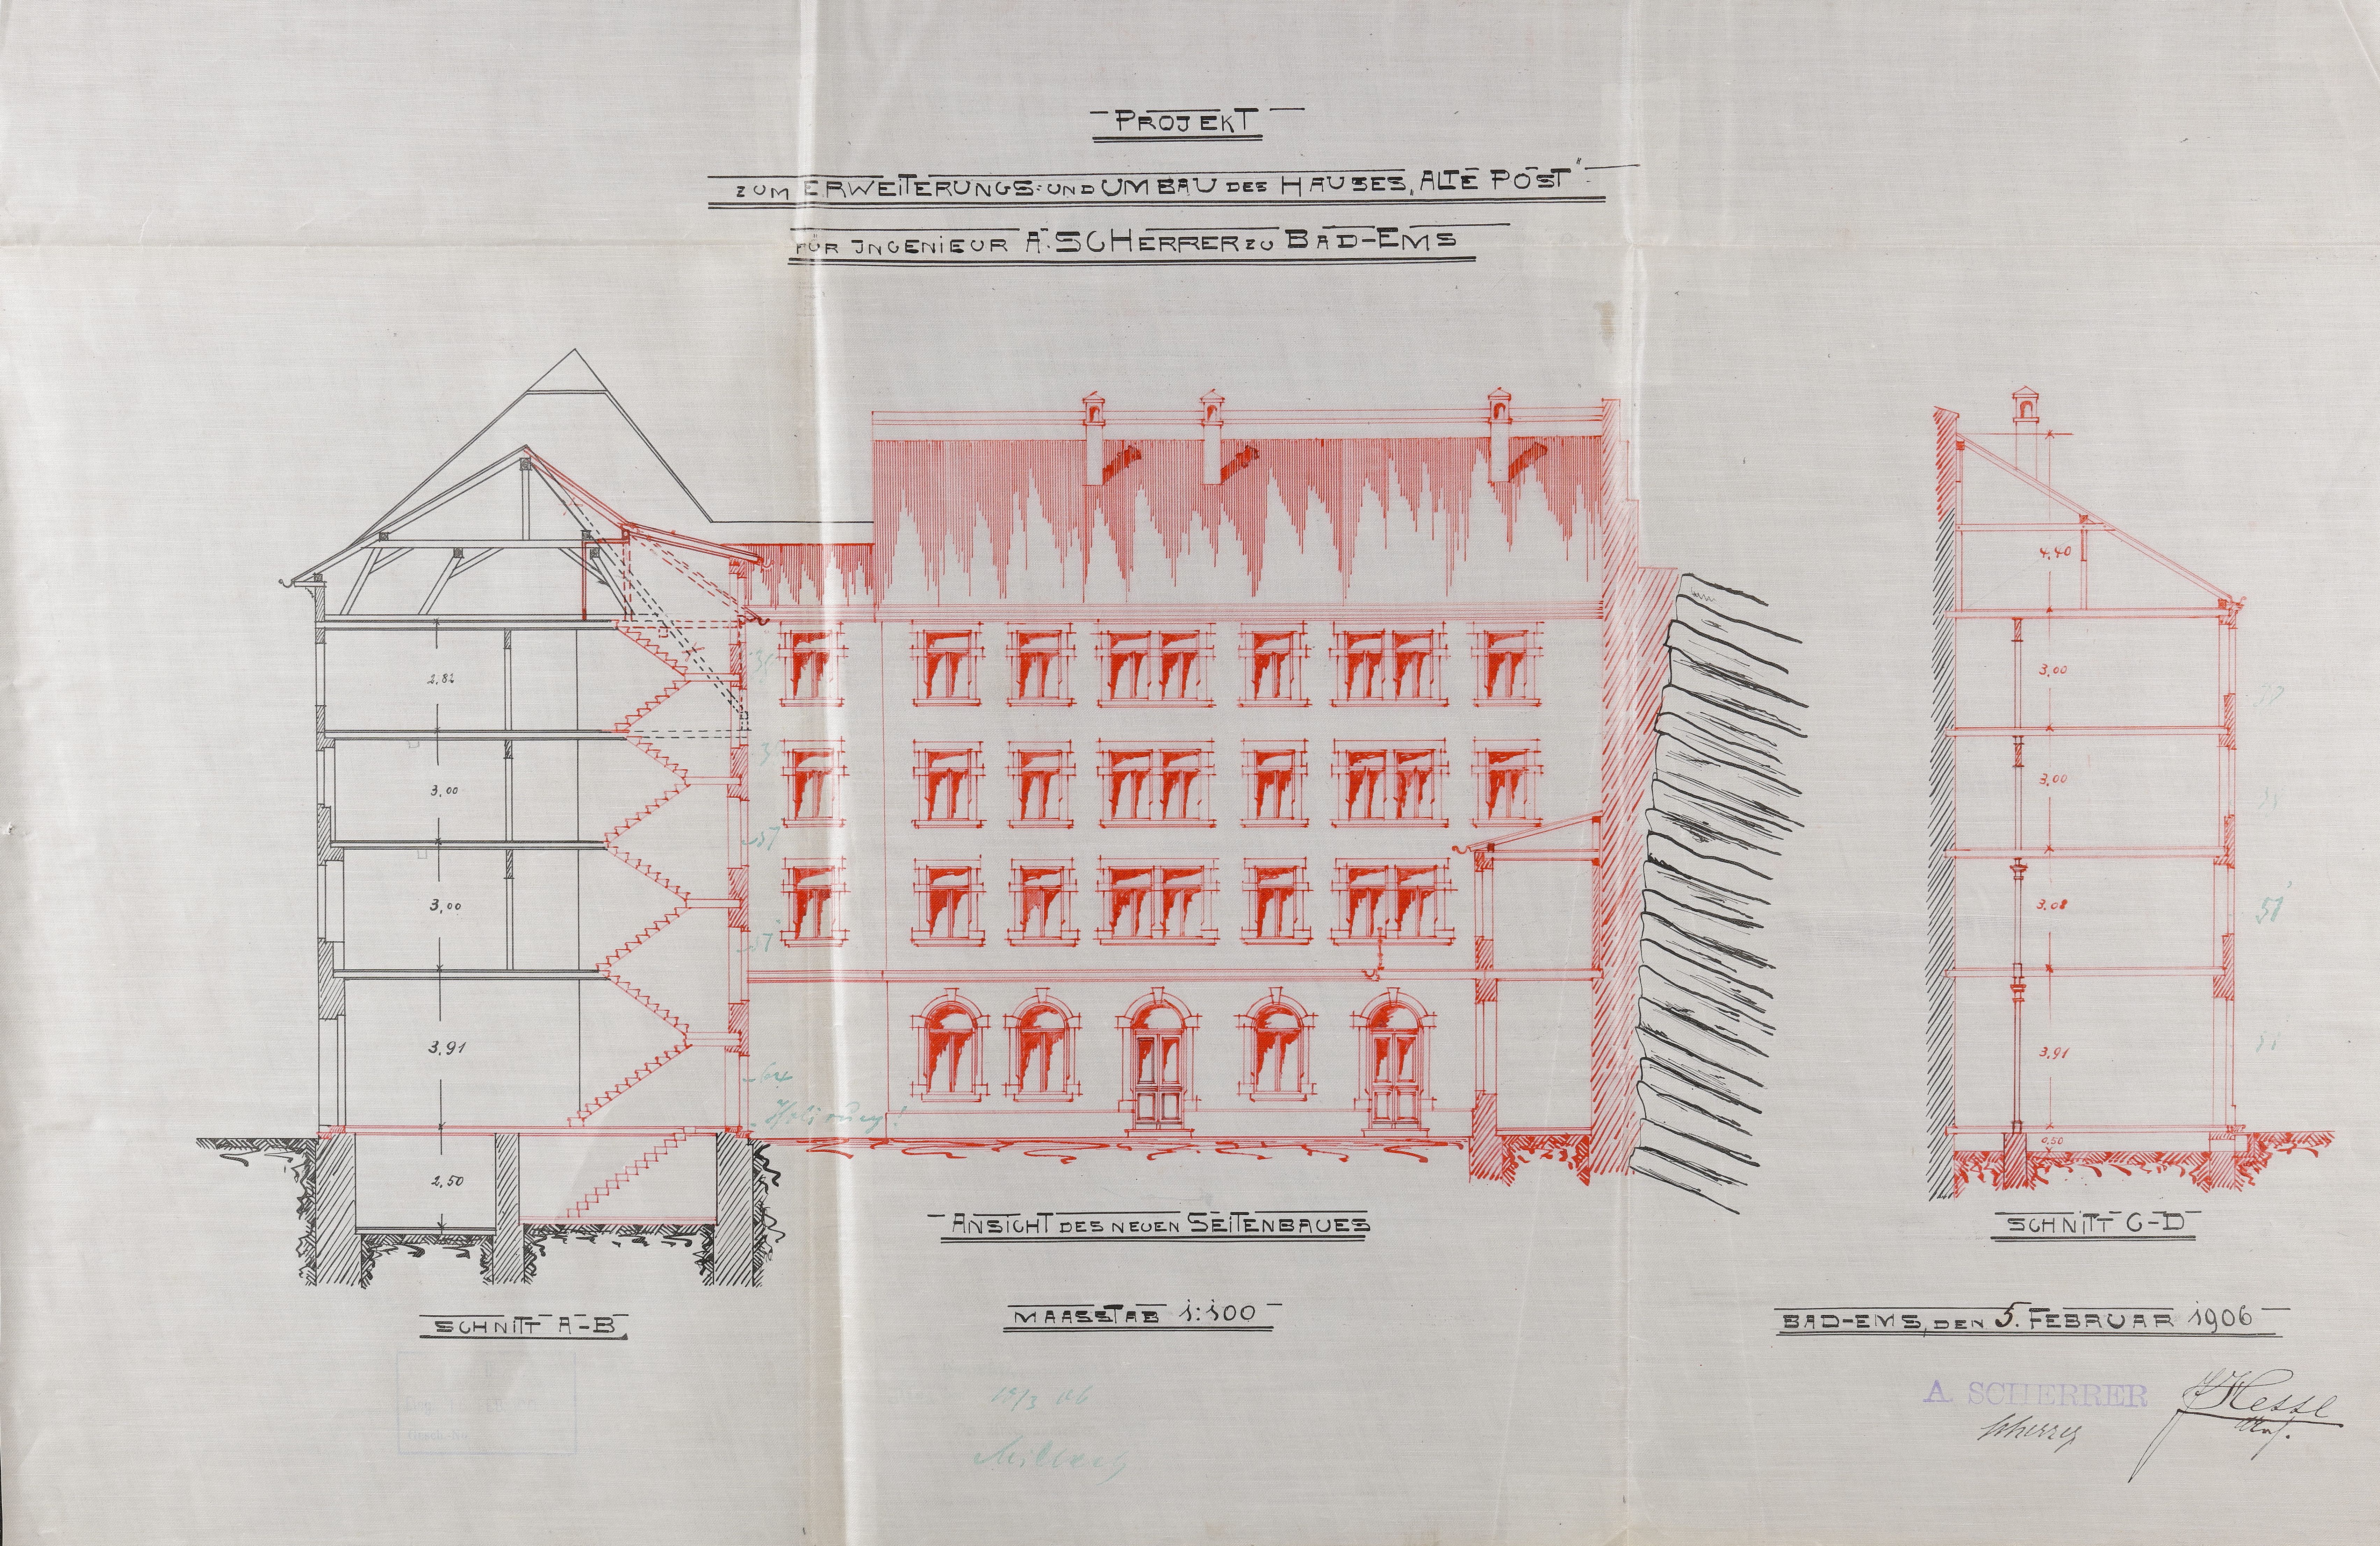 PROJEKT
ZUM ERWEITERUNGS- UND UMBAU DES HAUSES „ALTE POST"
FÜR INGENIEUR A. SCHERRER ZU BAD-EMS
2,82
3,00
3,00
3,91
2,50
57
57
64
Isolirung!
4,40
3,00
3,00
3,08
3,91
0,50
51
ANSICHT DES NEUEN SEITENBAUES
SCHNITT C-D
SCHNITT A-B
MAASSTAB 1:100
BAD-EMS, DEN 5. FEBRUAR 1906
A. SCHERRER
Scherrer
Hesse